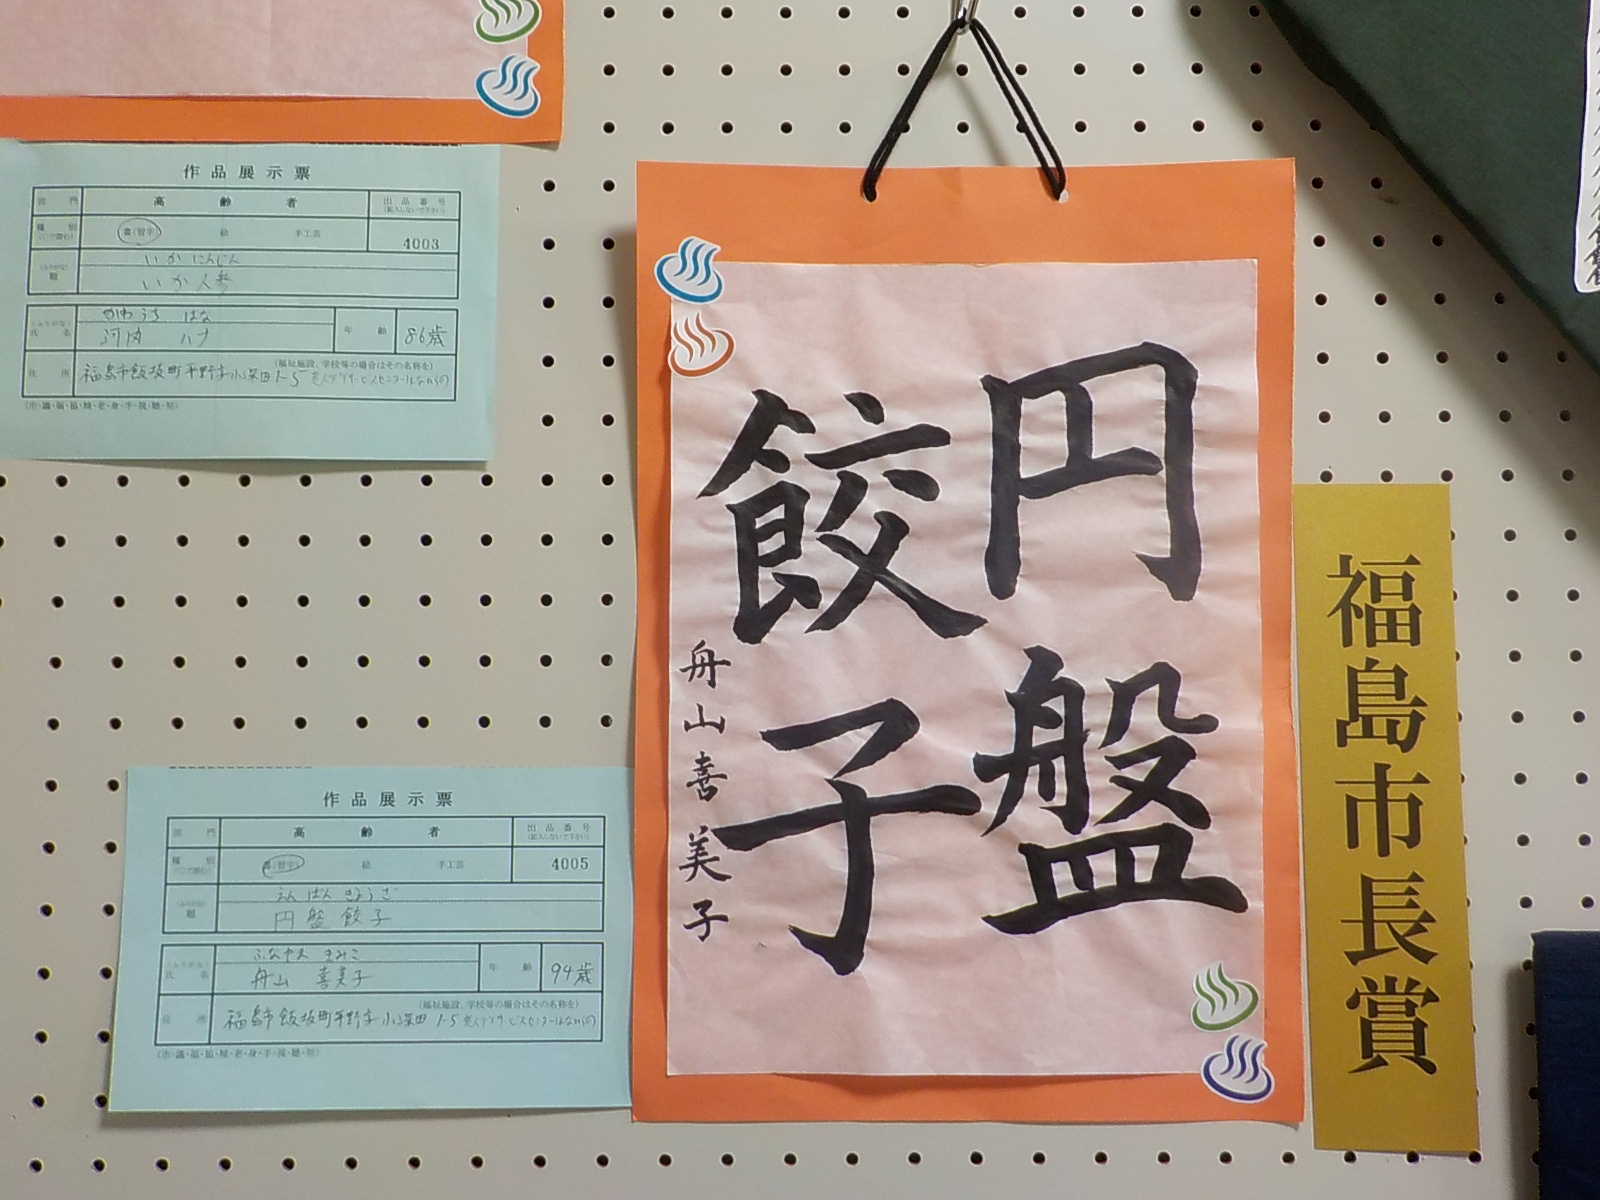 作品展示票
部門 高齢者 出品番号
(記入しないで下さい)
種別 書(習字) 絵 手工芸
(○で囲む)
4003
いかにんじん
題 いか人参
かわうち はな
氏名 河内 ハナ 年齢 86歳
(福祉施設、学校等の場合はその名称を)
住所 福島市飯坂町平野字小深田1-5 老人デイサービスセンターはなしの
(市・議・福・協・精・老・身・手・視・聴・知)
円盤
餃子
舟山喜美子
福島市長賞
作品展示票
部門 高齢者 出品番号
(記入しないで下さい)
種別 書(習字) 絵 手工芸
(○で囲む)
4005
えんばんぎょうざ
題 円盤餃子
ふなやま きみこ
氏名 舟山 喜美子 年齢 94歳
(福祉施設、学校等の場合はその名称を)
住所 福島市飯坂町平野字小深田1-5
(市・議・福・協・精・老・身・手・視・聴・知)